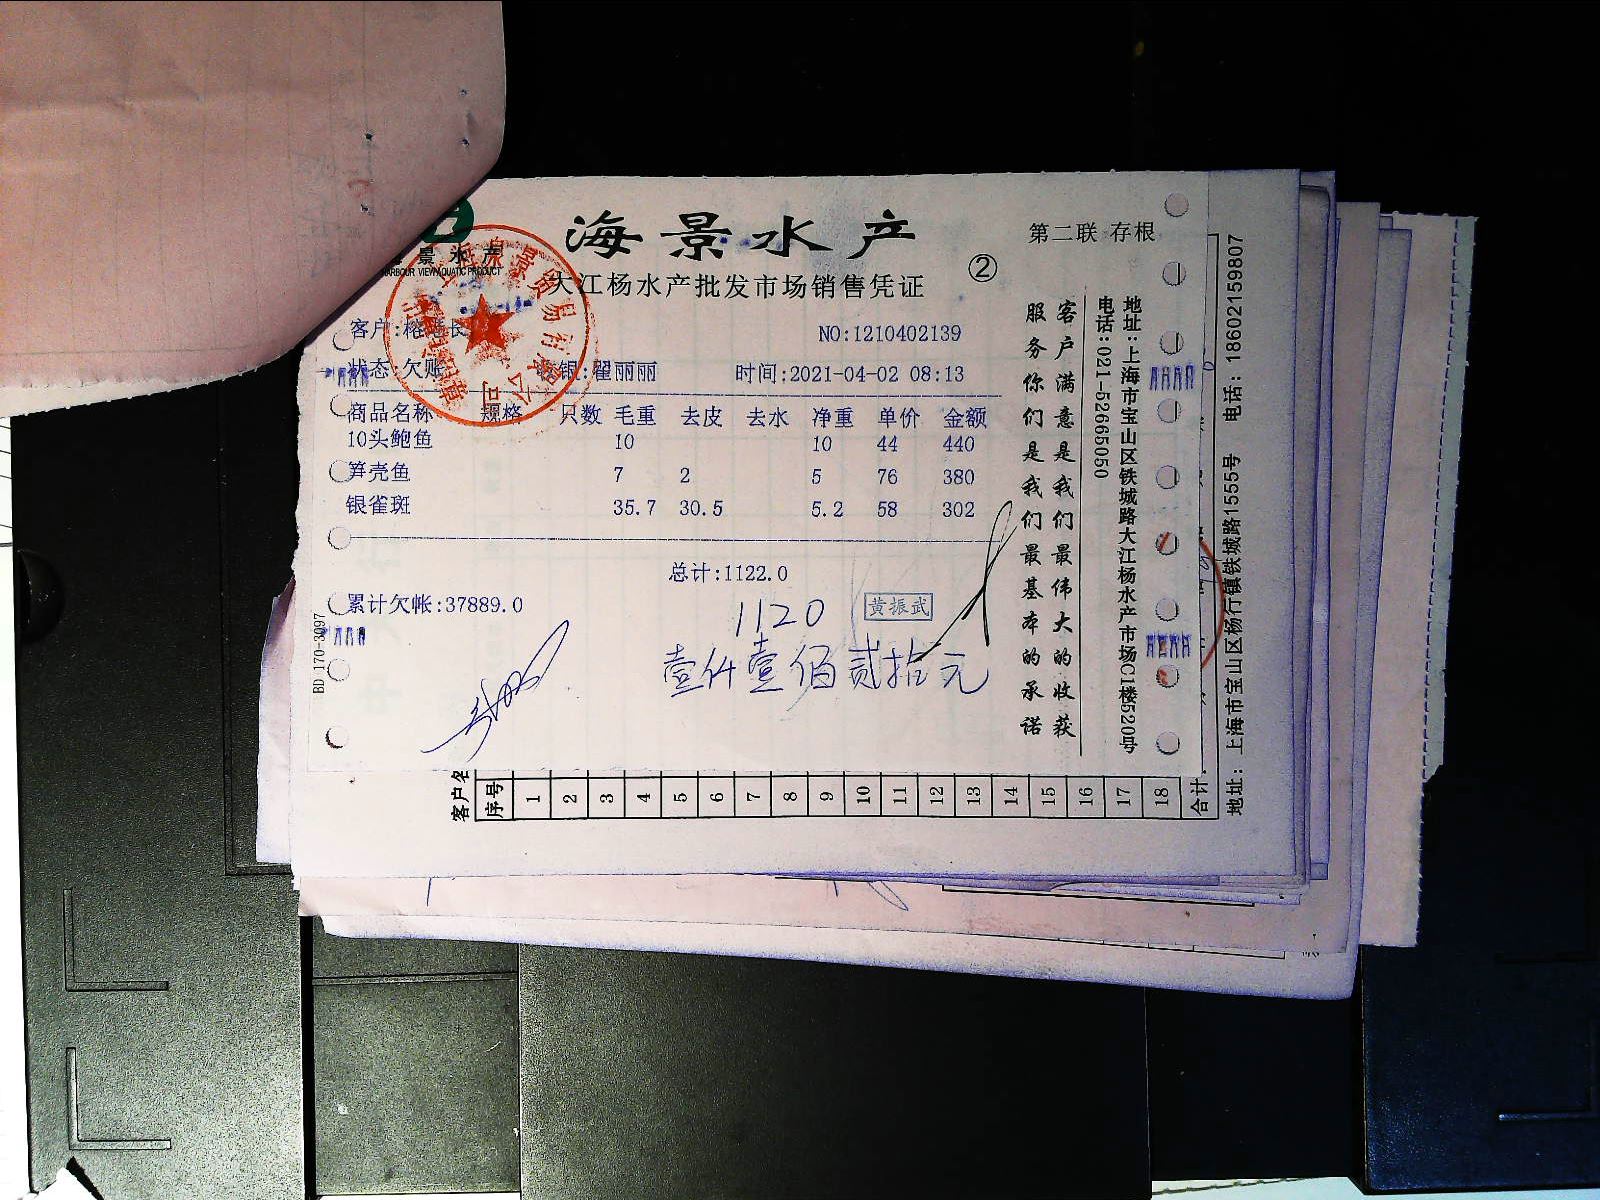 海景水产
第二联 存根
景水产
HARBOUR VIEW AQUATIC PRODUCT
大江杨水产批发市场销售凭证
②
NO:1210402139
状态:欠账
银:翟丽丽
时间:2021-04-02 08:13
商品名称 规格 只数 毛重 去皮 去水 净重 单价 金额
10头鲍鱼 10 10 44 440
笋壳鱼 7 2 5 76 380
银雀斑 35.7 30.5 5.2 58 302
总计:1122.0
累计欠帐:37889.0
1120
黄振武
壹仟壹佰贰拾元
BD 170-3097
客户满意是我们最伟大的收获
服务你们是我们最基本的承诺
地址:上海市宝山区铁城路大江杨水产市场C1楼520号
电话:021-52665050
客户名
序号 1 2 3 4 5 6 7 8 9 10 11 12 13 14 15 16 17 18 合计
地址:上海市宝山区杨行镇铁城路1555号 电话:18602159807